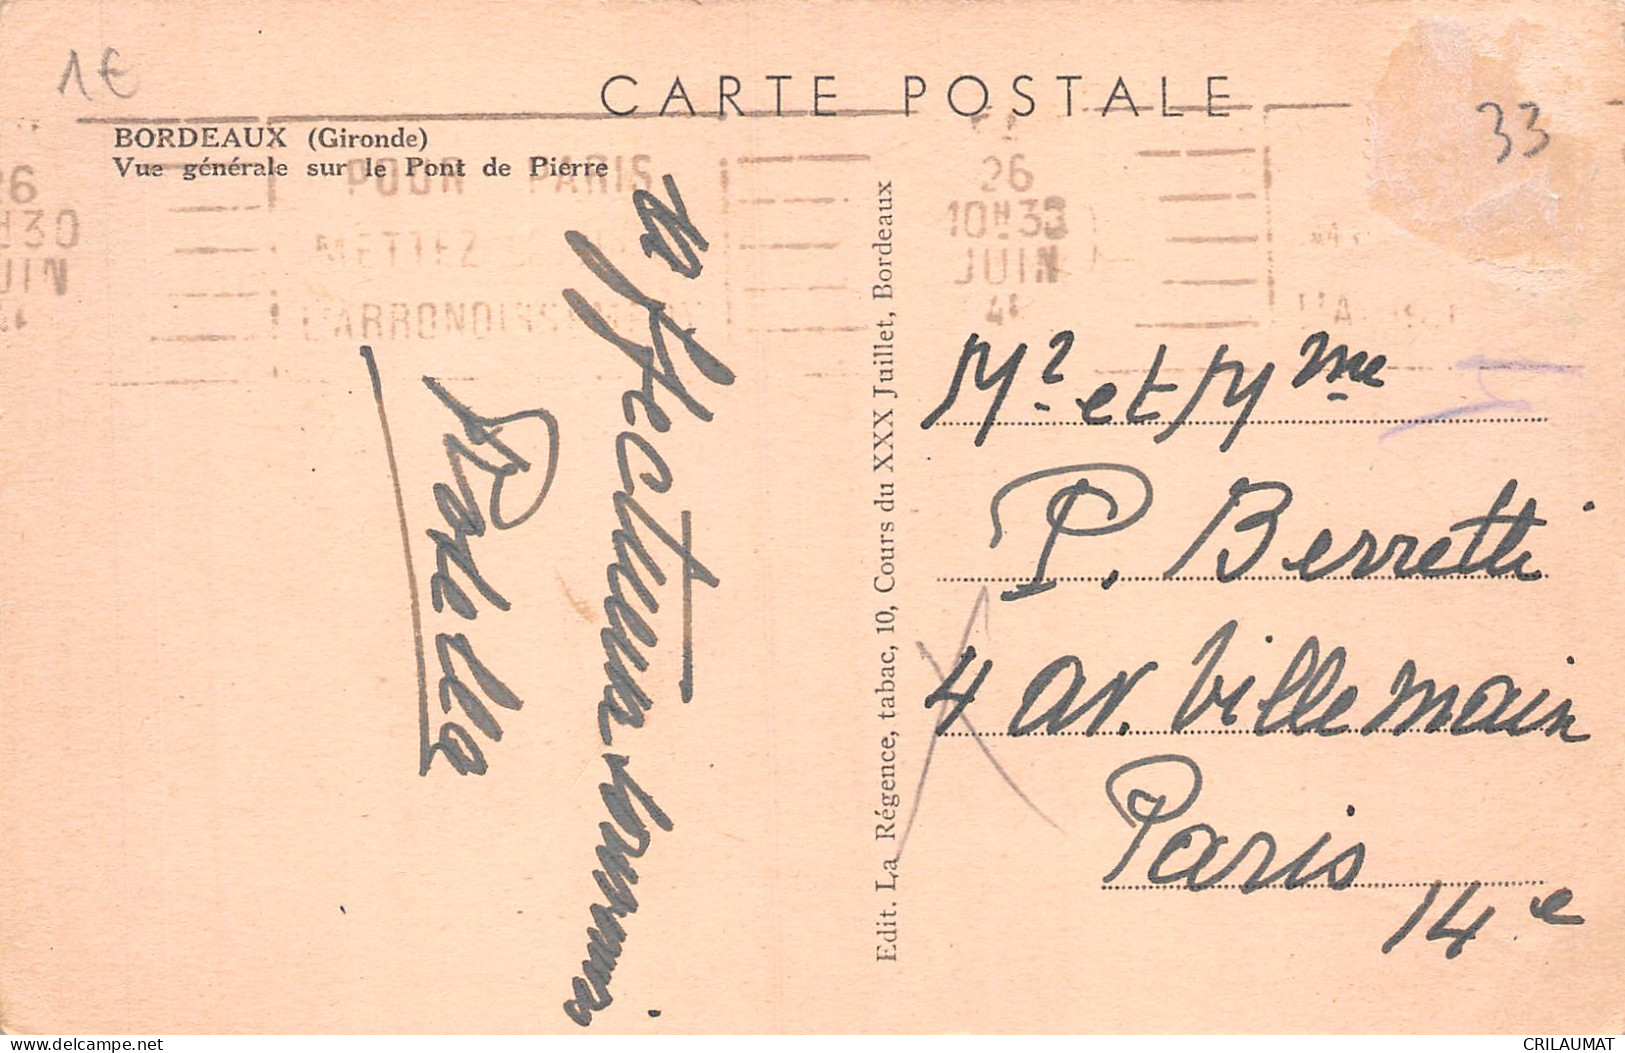 1€
CARTE POSTALE
33
BORDEAUX (Gironde)
Vue générale sur le Pont de Pierre
26
10H30
JUIN
POUR PARIS
METTEZ
L'ARRONDISSEMENT
26
10H33
JUIN
Edit. La Régence, tabac, 10, Cours du XXX Juillet, Bordeaux
Mr et Mme
P. Berretti
4 av. Villemain
Paris
14e
CRILAUMAT